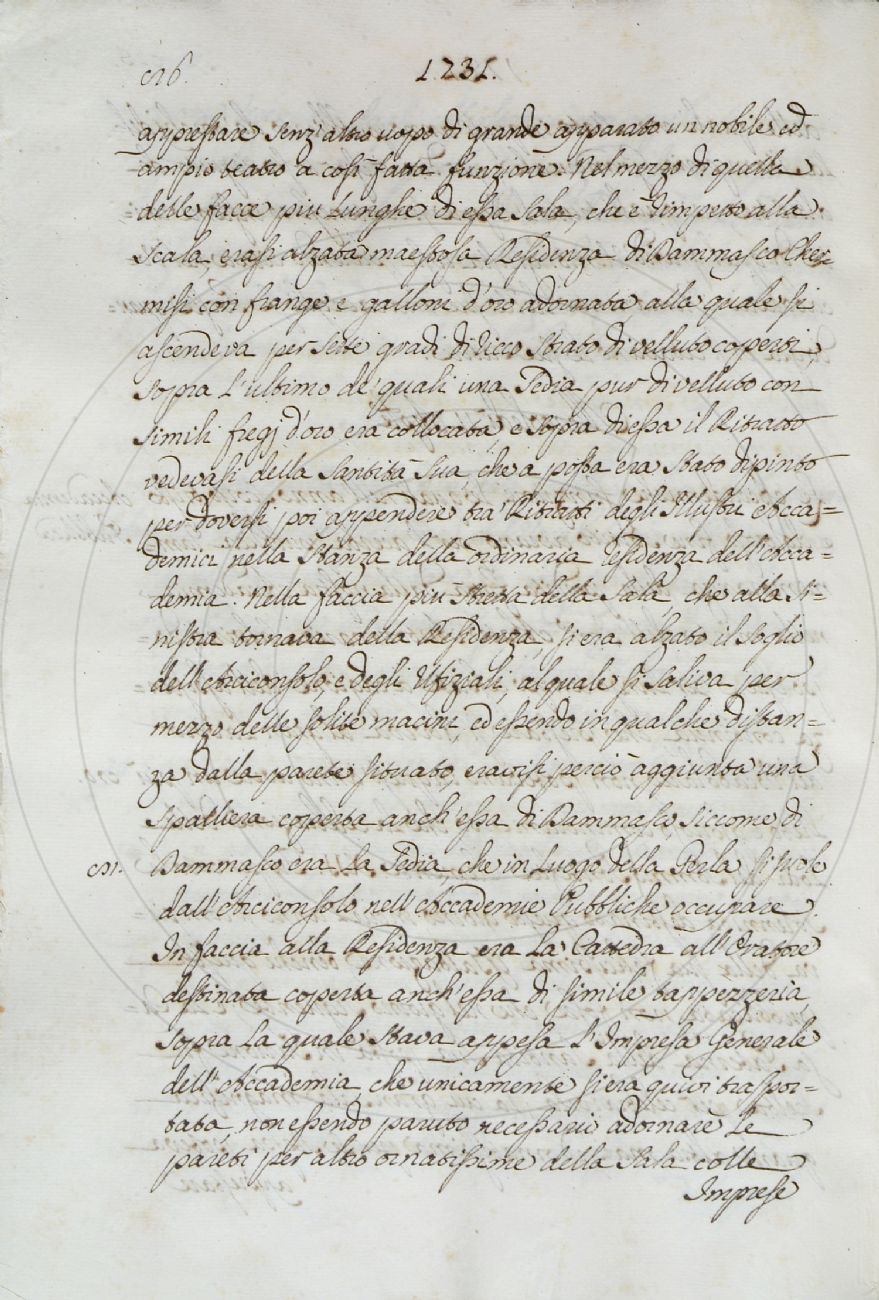 1231.
apprestare senz'altro uopo di grande apparato un nobile, ed
ampio teatro a così fatta funzione. Nel mezzo di quella
delle facce più lunghe di essa Sala, che è dimpetto alla
Scala, erasi alzata maestosa Residenza di Dammasco Cher=
misi con frange e galloni d'oro adornata alla quale si
ascendeva per sette gradi di ricco strato di velluto coperti,
sopra l'ultimo de' quali una Sedia pur di velluto con
simili fregj d'oro era collocata, e sopra di essa il Ritratto
vedevasi della Santità Sua, che a posta era stato dipinto
per doversi poi appendere tra' Ritratti degli Illustri Acca=
demici nella Stanza della ordinaria residenza dell'Acca=
demia. Nella faccia più stretta della Sala che alla si=
nistra tornava della Residenza, si era alzato il Soglio
dell'Arciconsolo, e degli Ufiziali, al quale si saliva per
mezzo delle solite macini, ed essendo in qualche distan=
za dalla parete situato, eravisi perciò aggiunta una
spalliera coperta anch'essa di Dammasco, siccome di
Dammasco era la Sedia, che in luogo della Gerla si suole
dall'Arciconsolo nell'Accademie Pubbliche occupare.
In faccia alla Residenza era la Cattedra all'Oratore
destinata coperta anch'essa di simile tappezzeria,
sopra la quale stava appesa l'Impresa Generale
dell'Accademia, che unicamente si era quivi traspor=
tata, non essendo paruto necessario adornare le
pareti per altro ornatissime della Sala colle
Imprese